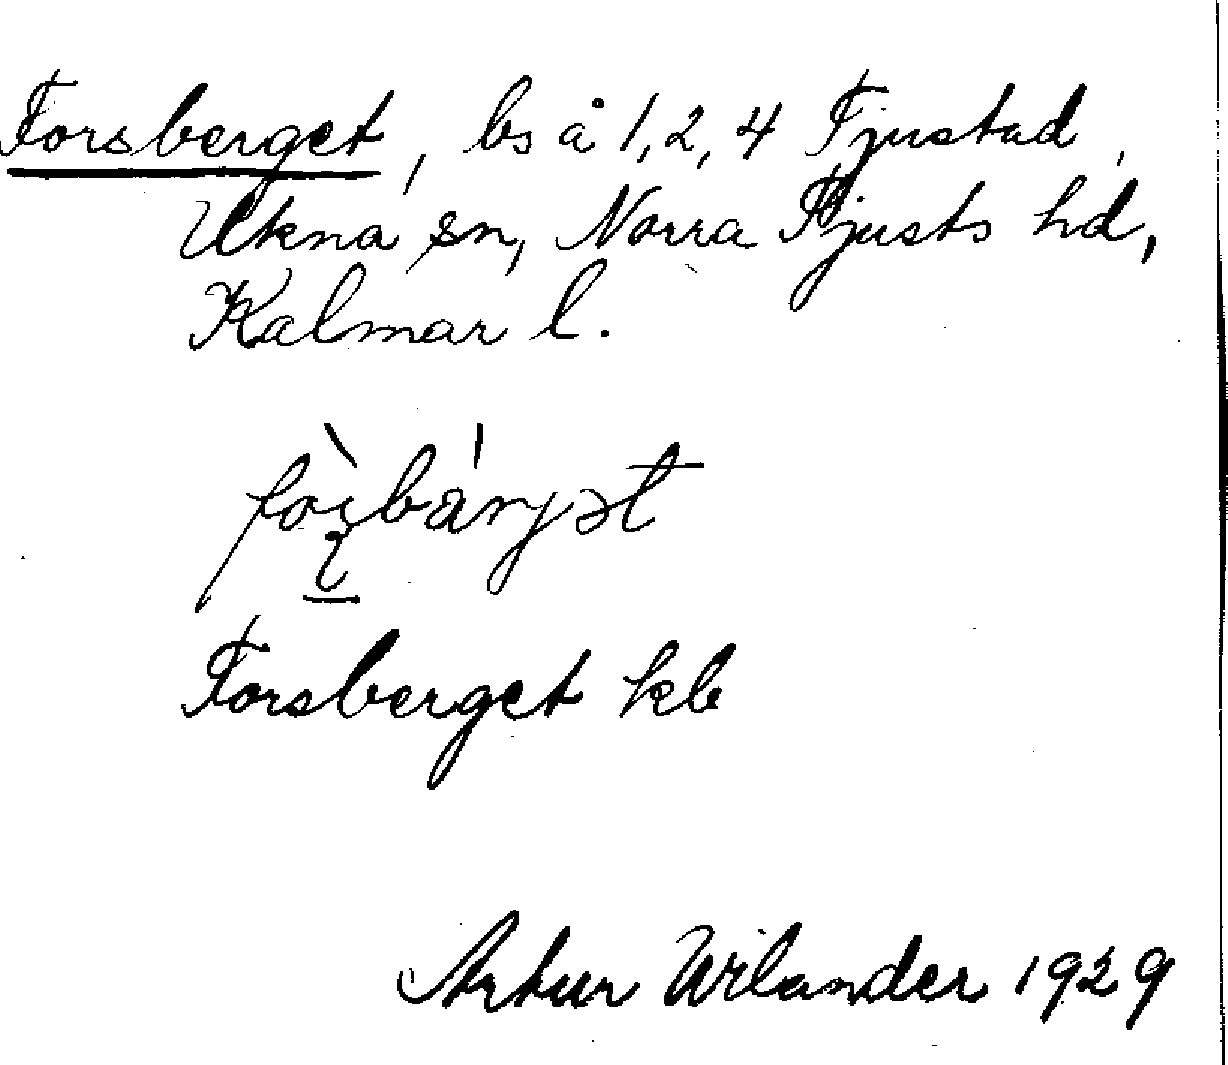 Forsberget, bs å 1, 2, 4 Tjustad,
Ukna sn, Norra Tjusts hd,
Kalmar l.
Forsberget kb
Artur Wilander 1929